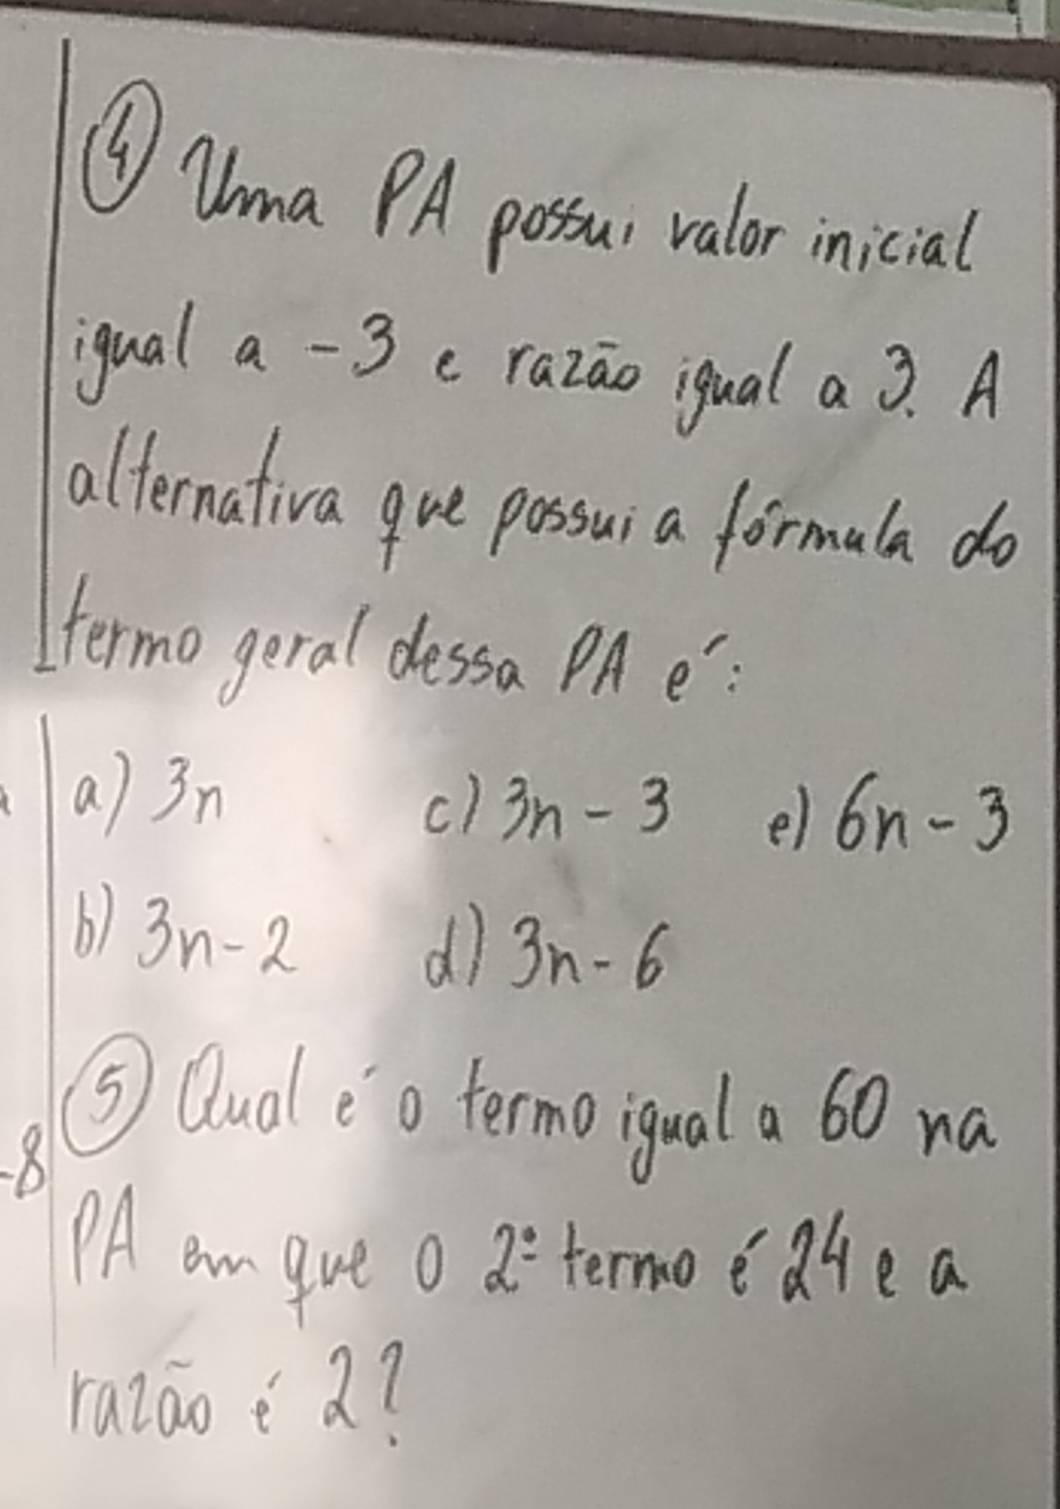 ④ Uma PA possui valor inicial
igual a -3 e razão igual a 3. A
alternativa que possui a fórmula do
termo geral dessa PA é:
a) 3n c) 3n - 3 e) 6n - 3
b) 3n - 2 d) 3n - 6
⑤ Qual é o termo igual a 60 na
-8
PA em que o 2º termo é 24 e a
razão é 2?